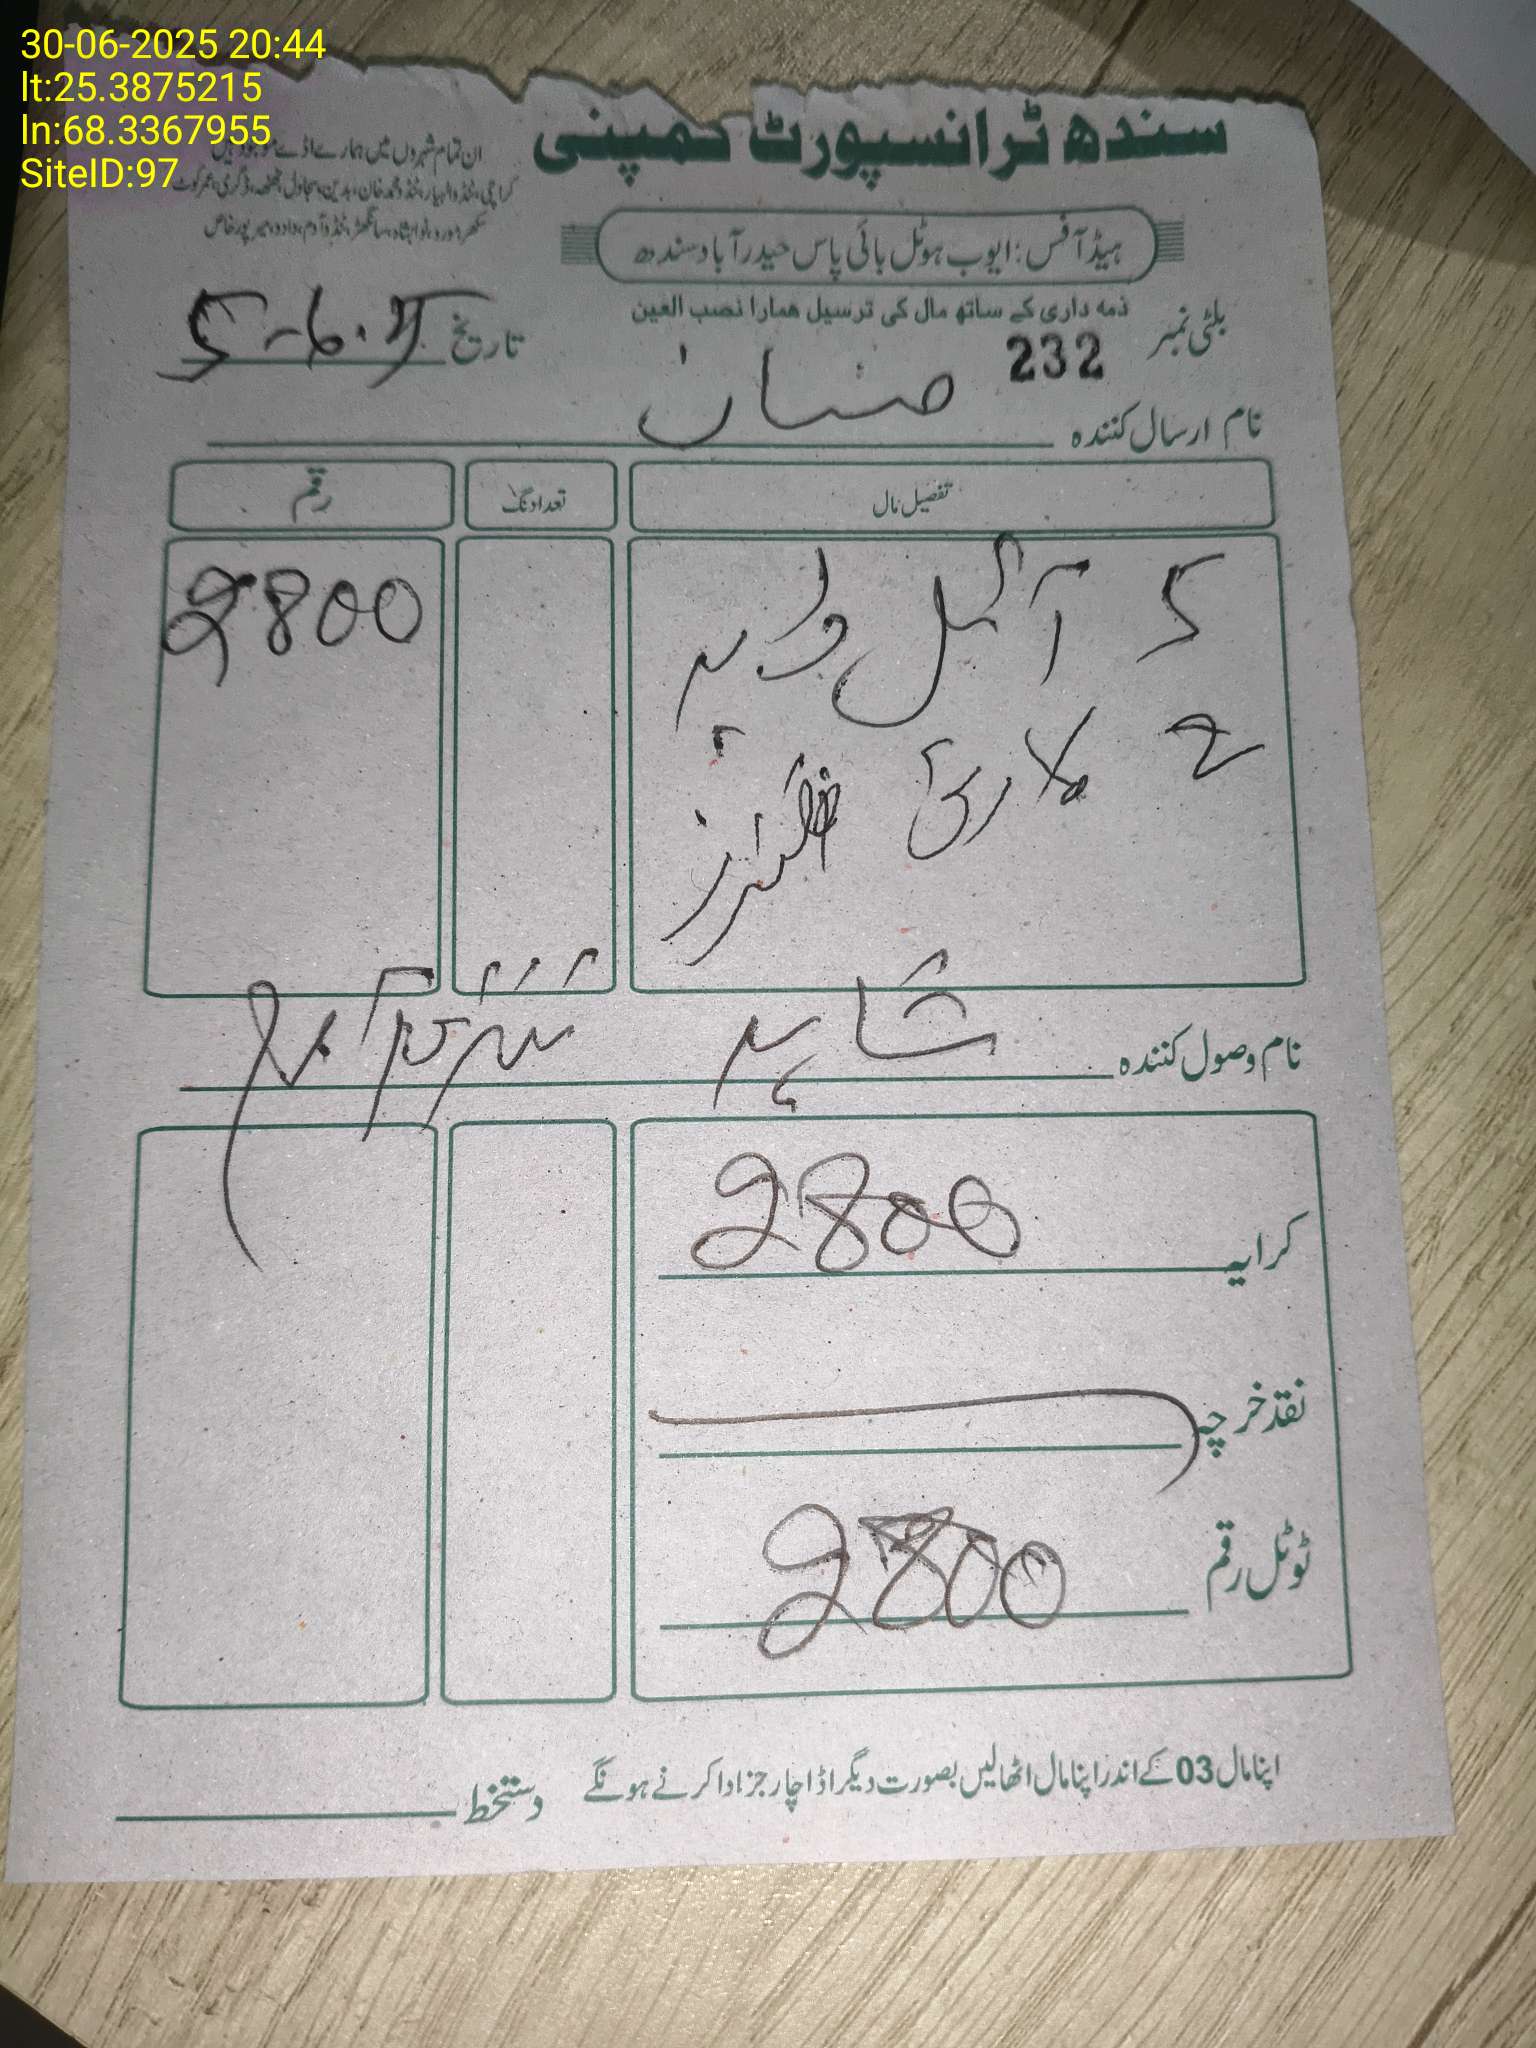 30-06-2025 20:44
lt:25.3875215
ln:68.3367955
SiteID:97
سندھ ٹرانسپورٹ کمپنی
ان تمام شہروں میں ہمارے اڈے موجود ہیں
کراچی، ٹنڈوالہیار، ٹنڈو محمد خان، بدین، سجاول، ٹھٹھہ، ڈگری، عمرکوٹ
سکھر، مورو، نوابشاہ، سانگھڑ، ٹنڈوآدم، دادو، میرپورخاص
ہیڈ آفس: ایوب ہوٹل بائی پاس حیدرآباد سندھ
ذمہ داری کے ساتھ مال کی ترسیل ھمارا نصب العین
بلٹی نمبر 232
تاریخ 5-6.
نام ارسال کنندہ
تفصیل مال
تعداد نگ
رقم
5 آئل
2800
2
نام وصول کنندہ شاہد
کرایہ 2800
نقد خرچہ
ٹوٹل رقم 2800
اپنا مال 03 کے اندر اپنا مال اٹھالیں بصورت دیگر اڈا چارجز ادا کرنے ہونگے
دستخط